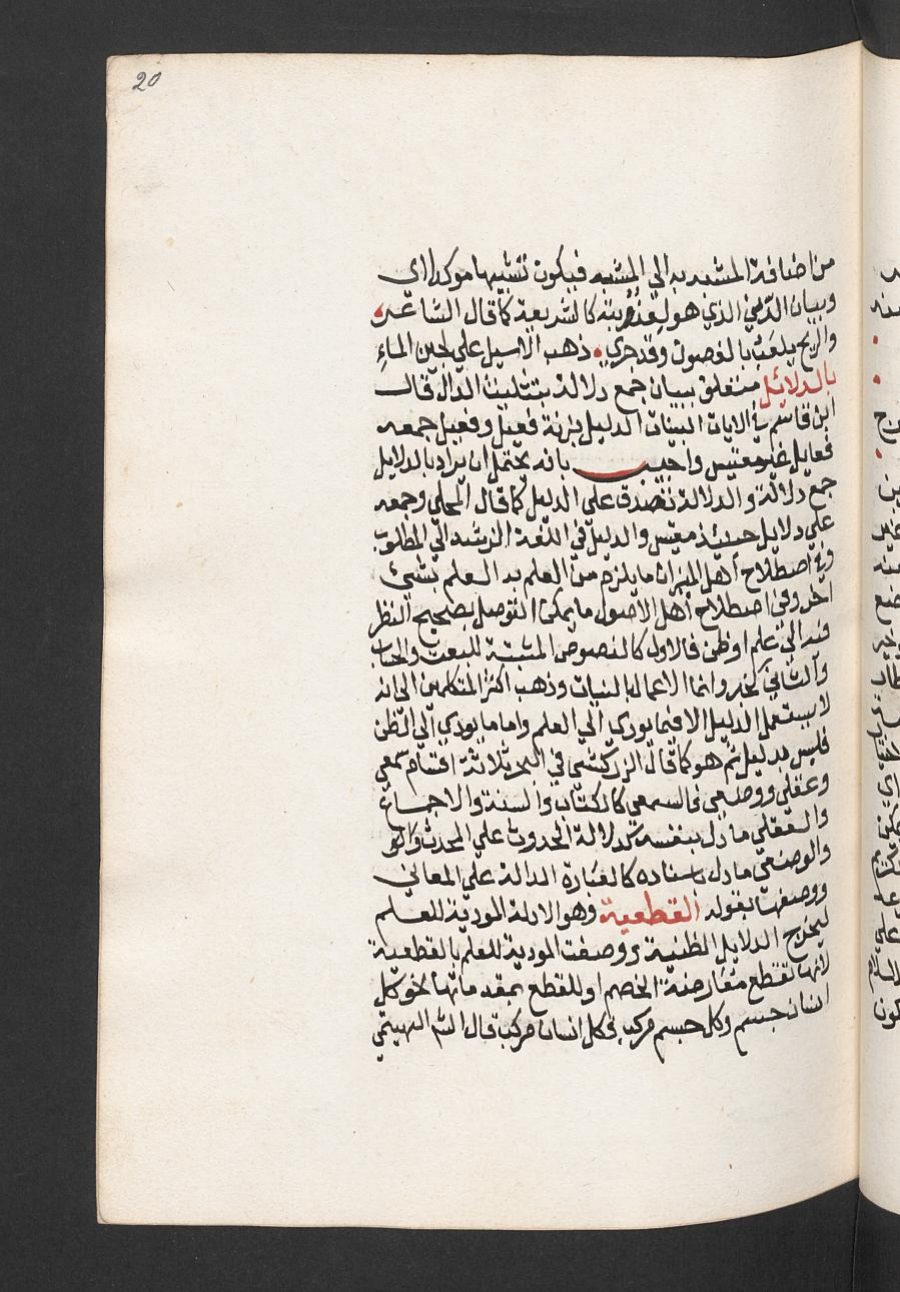 20
من اضافة المشبه به الي المشبه فيكون تشبيها موكدا اي
وبيان الدين الذي هو لعذوبته كالشريعة كما قال الشاعر
والريح يلعب بالغصون وقد جري ذهب الاصيل علي لجين الماء
بالدلائل متعلق ببيان جمع دلالة بتثليث الدال قال
ابن قاسم في الايات البينات الدليل بزنة فعيل وفعيل جمعه
فعايل غير مقيس واجيب بانه يحتمل ان يراد بالدلايل
جمع دلالة والدلالة تصدق علي الدليل كما قال المحلي وجمعه
علي دلايل حينئذ مقيس والدليل في اللغة المرشد الي المطلوب
وفي اصطلاح أهل الميزان ما يلزم من العلم به العلم بشيئ
اخر وفي اصطلاح أهل الاصول ما يمكن التوصل بصحيح النظر
فيه الي علم او ظن فالاول كالنصوص المثبتة للبعث والحساب
والثاني كخبر وانما الاعمال بالنيات وذهب اكثر المتكلمين الي انه
لا يستعمل الدليل الا فيما يودي الي العلم واما ما يودي الي الظن
فليس بدليل ثم هو كما قال الزركشي في البحر ثلاثة اقسام سمعي
وعقلي ووضعي فالسمعي كالكتاب والسنة والاجماع
والعقلي ما دل بنفسه كدلالة الحدوث علي المحدث
والوضعي ما دل باسناده كالعبارة الدالة علي المعاني
ووصفها بقوله القطعية وهو الادلة المودية للعلم
ليخرج الدلايل الظنية ووصفت المودية للعلم بالقطعية
لانها تقطع معارضة الخصم او للقطع بمقدماتها نحو كل
انسان جسم وكل جسم مركب فكل انسان مركب قال الشهاب الهيتمي